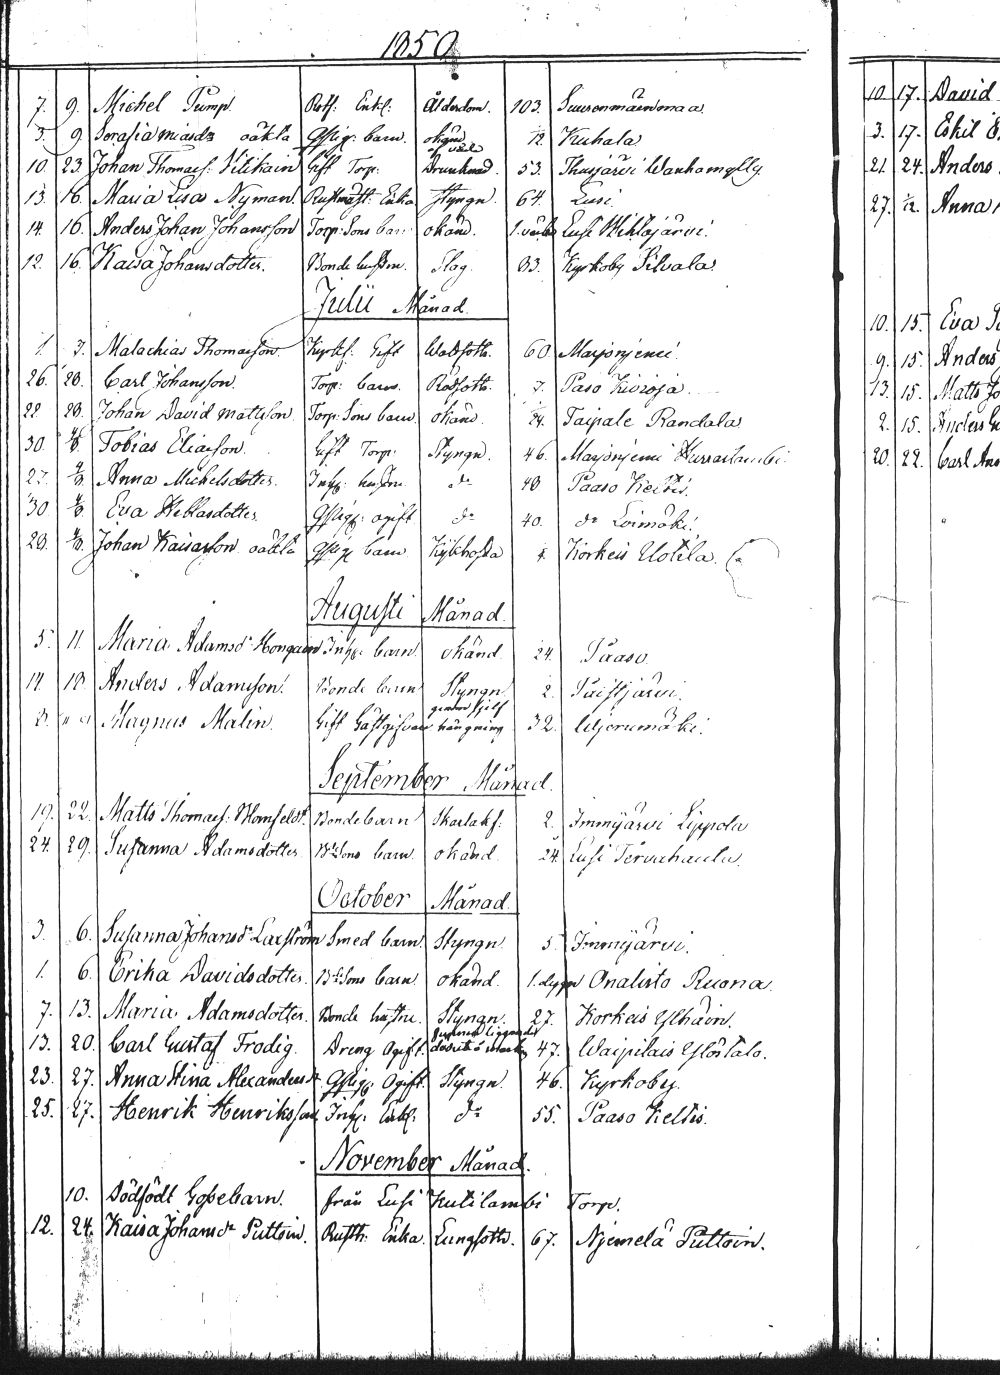 1850
7. 9. Michel Pump. Rotf: Enkl: Ålderdom. 103. Suurenmäenmaa
3. 9. Serafia miasdr oäkta Gssig: barn. okänd 12. Kuhala
10. 23. Johan Thomass: Vilikain Gift Torp: af våda Drunknad. 53. Thusjärvi Wanhamylly.
13. 16. Maria Lisa Nyman. Enka Styngn. 64. Lusi
14. 16. Anders Johan Johansson Torp: Sons barn okänd. Lusi
12. 16. Kaisa Johansdotter. Bonde hustru. Slag. 83. Kyrkoby Silvala.
Julii Månad.
1. 3. Malachias Thomasson. Gift Wattsott. 60. Marjoniemi.
26. 28. Carl Johansson. Torp: barn. Rödsott. 7. Paso Kivioja
22 28. Johan David Mattsson Torp: Sons barn okänd 24. Taipale Randala
30. 4/8. Tobias Eliasson. Gift Torp: Styngn. 46. Marjoniemi
27. 4/8. Anna Michelsdotter. Inhs: hustru. do 48 Paaso Keltis.
30. 4/8. Eva Gssig: ogift do 40. do Loimäki.
28. 4/8. Johan Kaisasson oäkta Gssig: barn. Kikhosta Korkeis Uotila.
Augusti Månad.
5. 11. Maria Adamsdr Hongain Inhs: barn. okänd 24. Paaso
14. 18. Anders Adamsson. Bonde barn Styngn. 2. Paistjärvi
Magnus Malin. Gift Gästgifvare genom sjelf hängning 32. Uljorumäki.
September Månad.
19. 22. Matts Thomass: Bonde barn Skarlakf: 2. Immijärvi Lippola
24. 29. Susanna Adamsdotter Bdsons barn. okänd. 24. Lusi Tervahauta.
October Månad.
3. 6. Susanna Johansdr Laxström Smed barn. Styngn. 5. Immijärvi.
1. 6. Erika Davidsdotter. Bdsons barn. okänd. 1. dygn Onalisto Ruona.
7. 13. Maria Adamsdotter. Bonde hustru. Styngn. 27. Korkeis Ylhäin.
13. 20. Carl Gustaf Frodig. Dreng Ogift. 47. Waipilais Ylöstalo.
23. 27. Anna Stina Alexandersdr Gssig: Ogift. Styngn. 46. Kyrkoby.
25. 27. Henrik Henriksson Inhs: Enkl: do 55. Paaso Keltis.
November Månad.
10. Dödfödt Gossebarn. från Lusi Kutilambi Torp.
12. 24. Kaisa Johansdr Puttoin. Rusth: Enka. Lungsotts. 67. Njemelä Puttoin.
10. 17. David
3. 17. Eskil
21. 24. Anders
27. 1/12. Anna
10. 15. Eva
9. 15. Anders
13. 15. Matts Jo
2. 15. Anders
20. 22. Carl